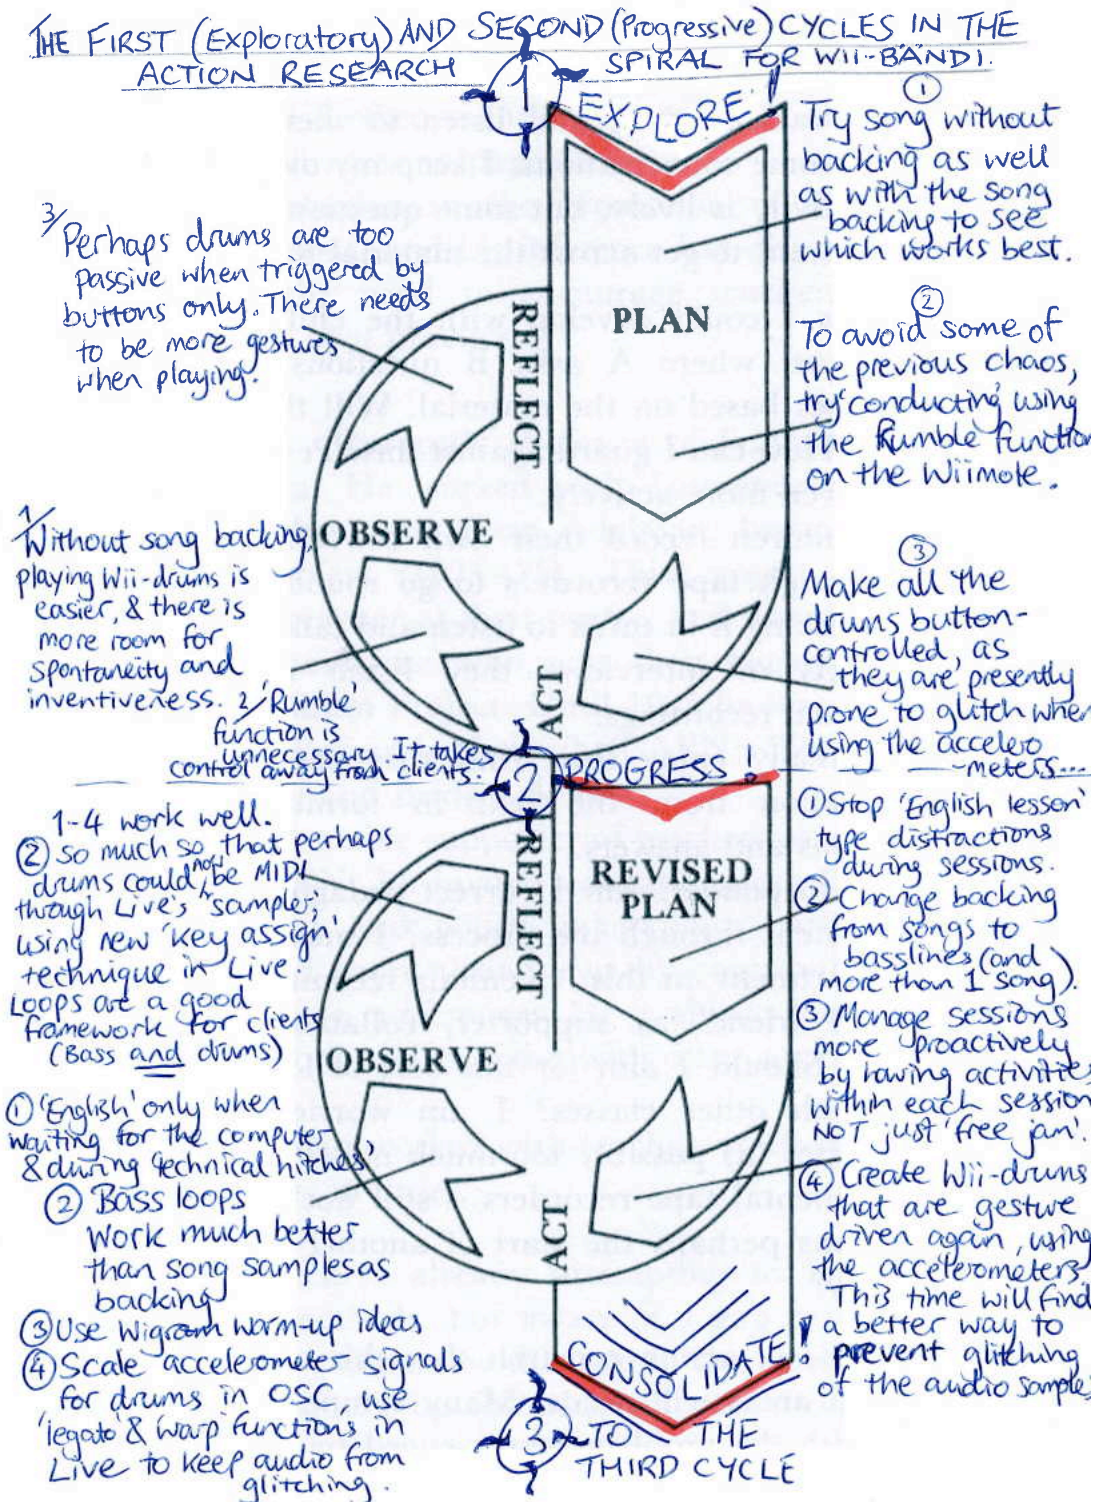 THE FIRST (Exploratory) AND SECOND (Progressive) CYCLES IN THE
ACTION RESEARCH 1 SPIRAL FOR WII-BAND 1.
EXPLORE!
①
Try song without
backing as well
as with the song
backing to see
which works best.
②
To avoid some of
the previous chaos,
try 'conducting' using
the Rumble function
on the Wiimote.
③
Make all the
drums button-
controlled, as
they are presently
prone to glitch when
using the accelero
meters...
3/
Perhaps drums are too
passive when triggered by
buttons only. There needs
to be more gestures
when playing.
PLAN
REFLECT
OBSERVE
ACT
1/
Without song backing,
playing Wii-drums is
easier, & there is
more room for
spontaneity and
inventiveness. 2/ 'Rumble'
function is
unnecessary. It takes
control away from clients.
2 PROGRESS!
① Stop 'English lesson'
type distractions
during sessions.
② Change backing
from songs to
basslines (and
more than 1 song).
③ Manage sessions
more proactively
by having activities
within each session
NOT just 'free jam'.
④ Create Wii-drums
that are gesture
driven again, using
the accelerometers.
This time will find
a better way to
prevent glitching
of the audio samples
REVISED
PLAN
REFLECT
OBSERVE
ACT
1-4 work well.
② So much so, that perhaps
drums could not be MIDI
through Live's 'sampler',
using new 'key assign'
technique in Live
Loops are a good
framework for clients
(Bass and drums)
① 'English' only when
waiting for the computer
& during technical hitches
② Bass loops
work much better
than song samples as
backing
③ Use Wigram warm-up ideas
④ Scale accelerometer signals
for drums in OSC, use
'legato' & warp functions in
Live to keep audio from
glitching.
CONSOLIDATE!
3 TO THE
THIRD CYCLE